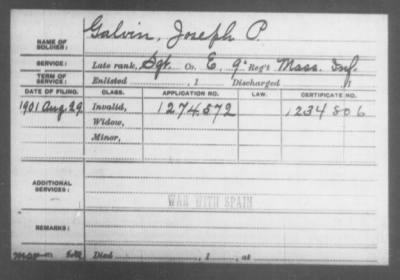 NAME OF SOLDIER: Galvin, Joseph P
SERVICE: Late rank, Sgt. Co. E, 9" Reg't Mass. Inf.
TERM OF SERVICE: Enlisted , 1 Discharged , 1
DATE OF FILING. CLASS. APPLICATION NO. LAW. CERTIFICATE NO.
1901 Aug. 29 Invalid, 1274572 1234806
Widow,
Minor,
ADDITIONAL SERVICES:
WAR WITH SPAIN
REMARKS:
Died , 1 , at